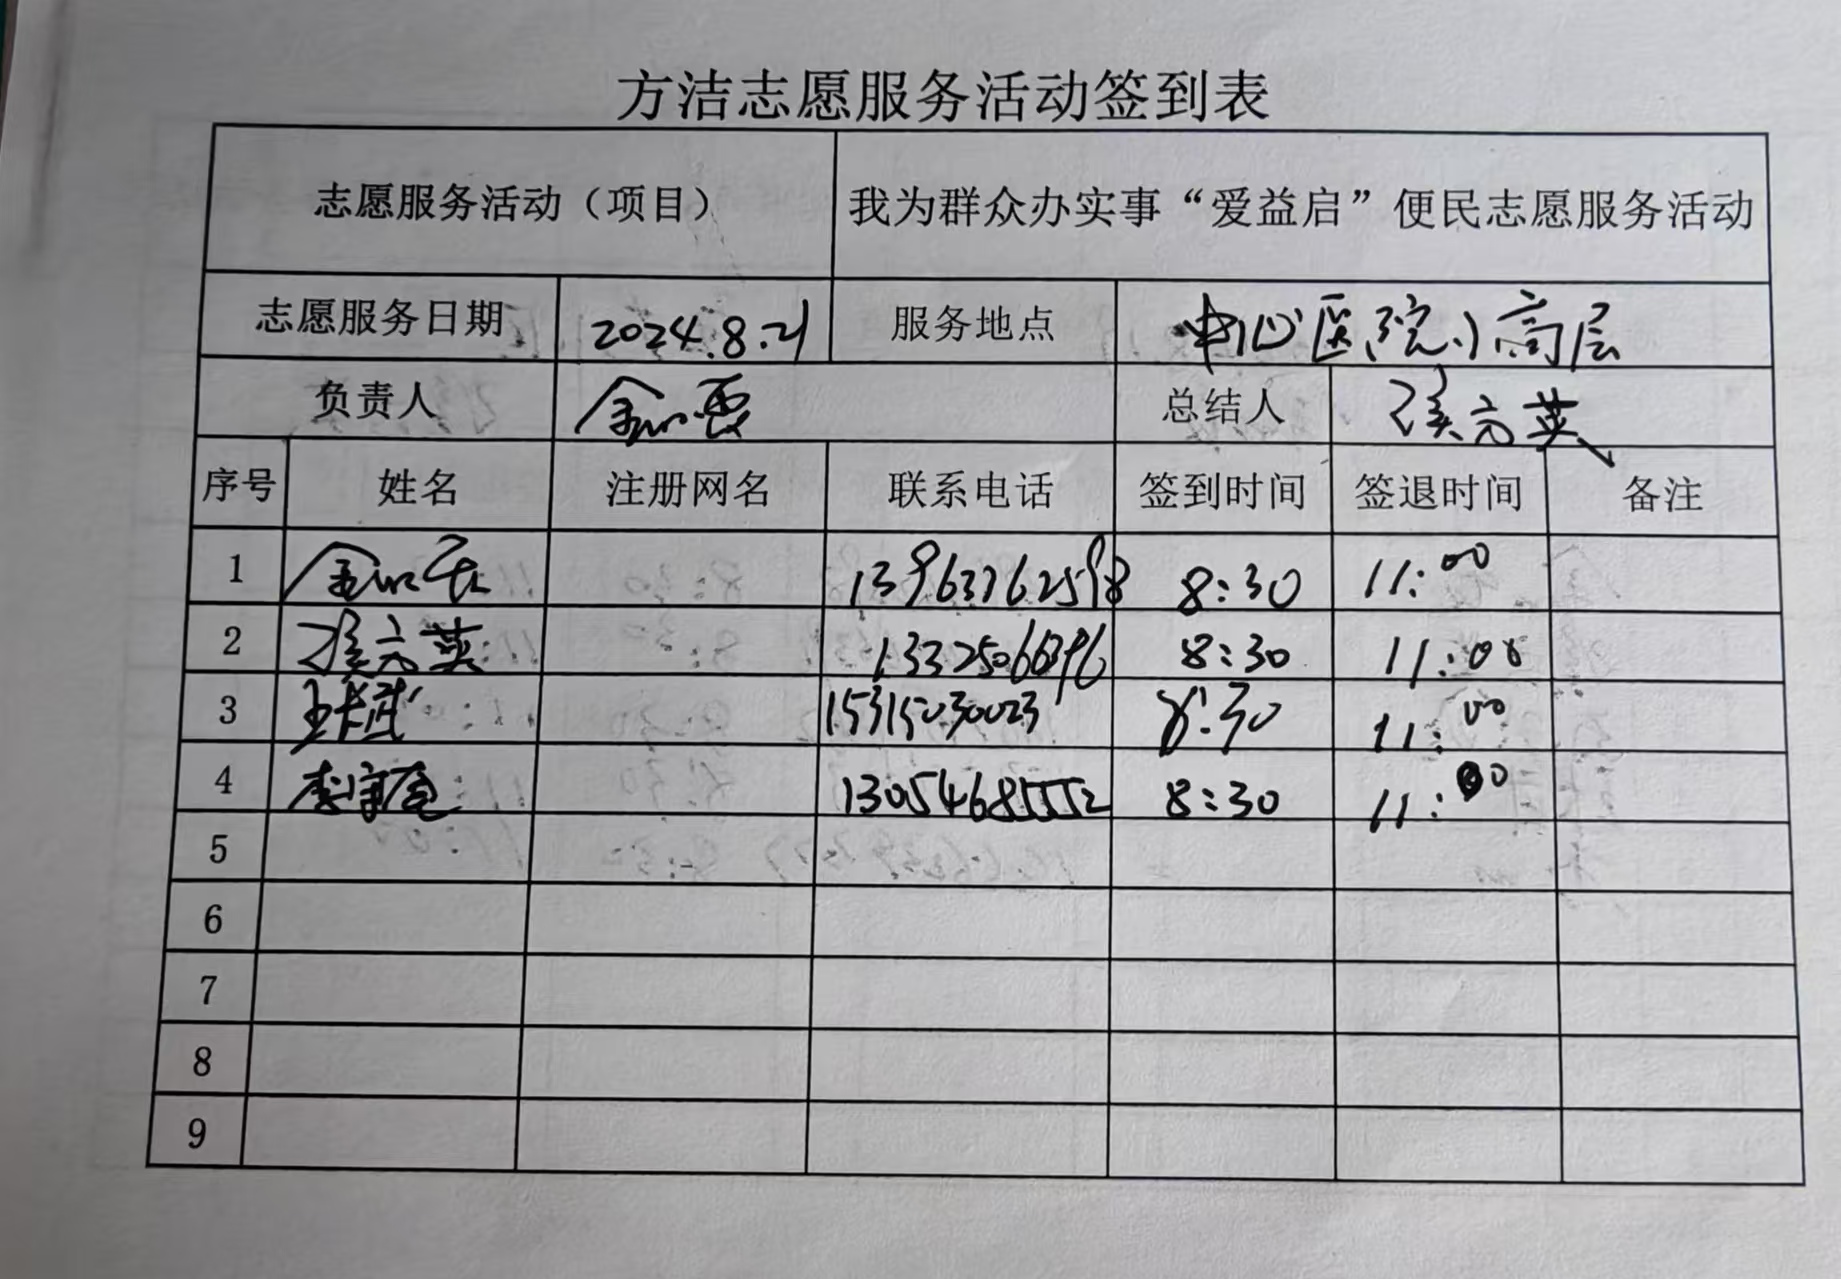 方洁志愿服务活动签到表
志愿服务活动（项目） 我为群众办实事“爱益启”便民志愿服务活动
志愿服务日期 2024.8.21 服务地点 中心医院小高层
负责人 总结人 侯立英
序号 姓名 注册网名 联系电话 签到时间 签退时间 备注
1 13963762598 8:30 11:00
2 侯立英 8:30 11:00
3 15315030023 8:30 11:00
4 13054685552 8:30 11:00
5
6
7
8
9